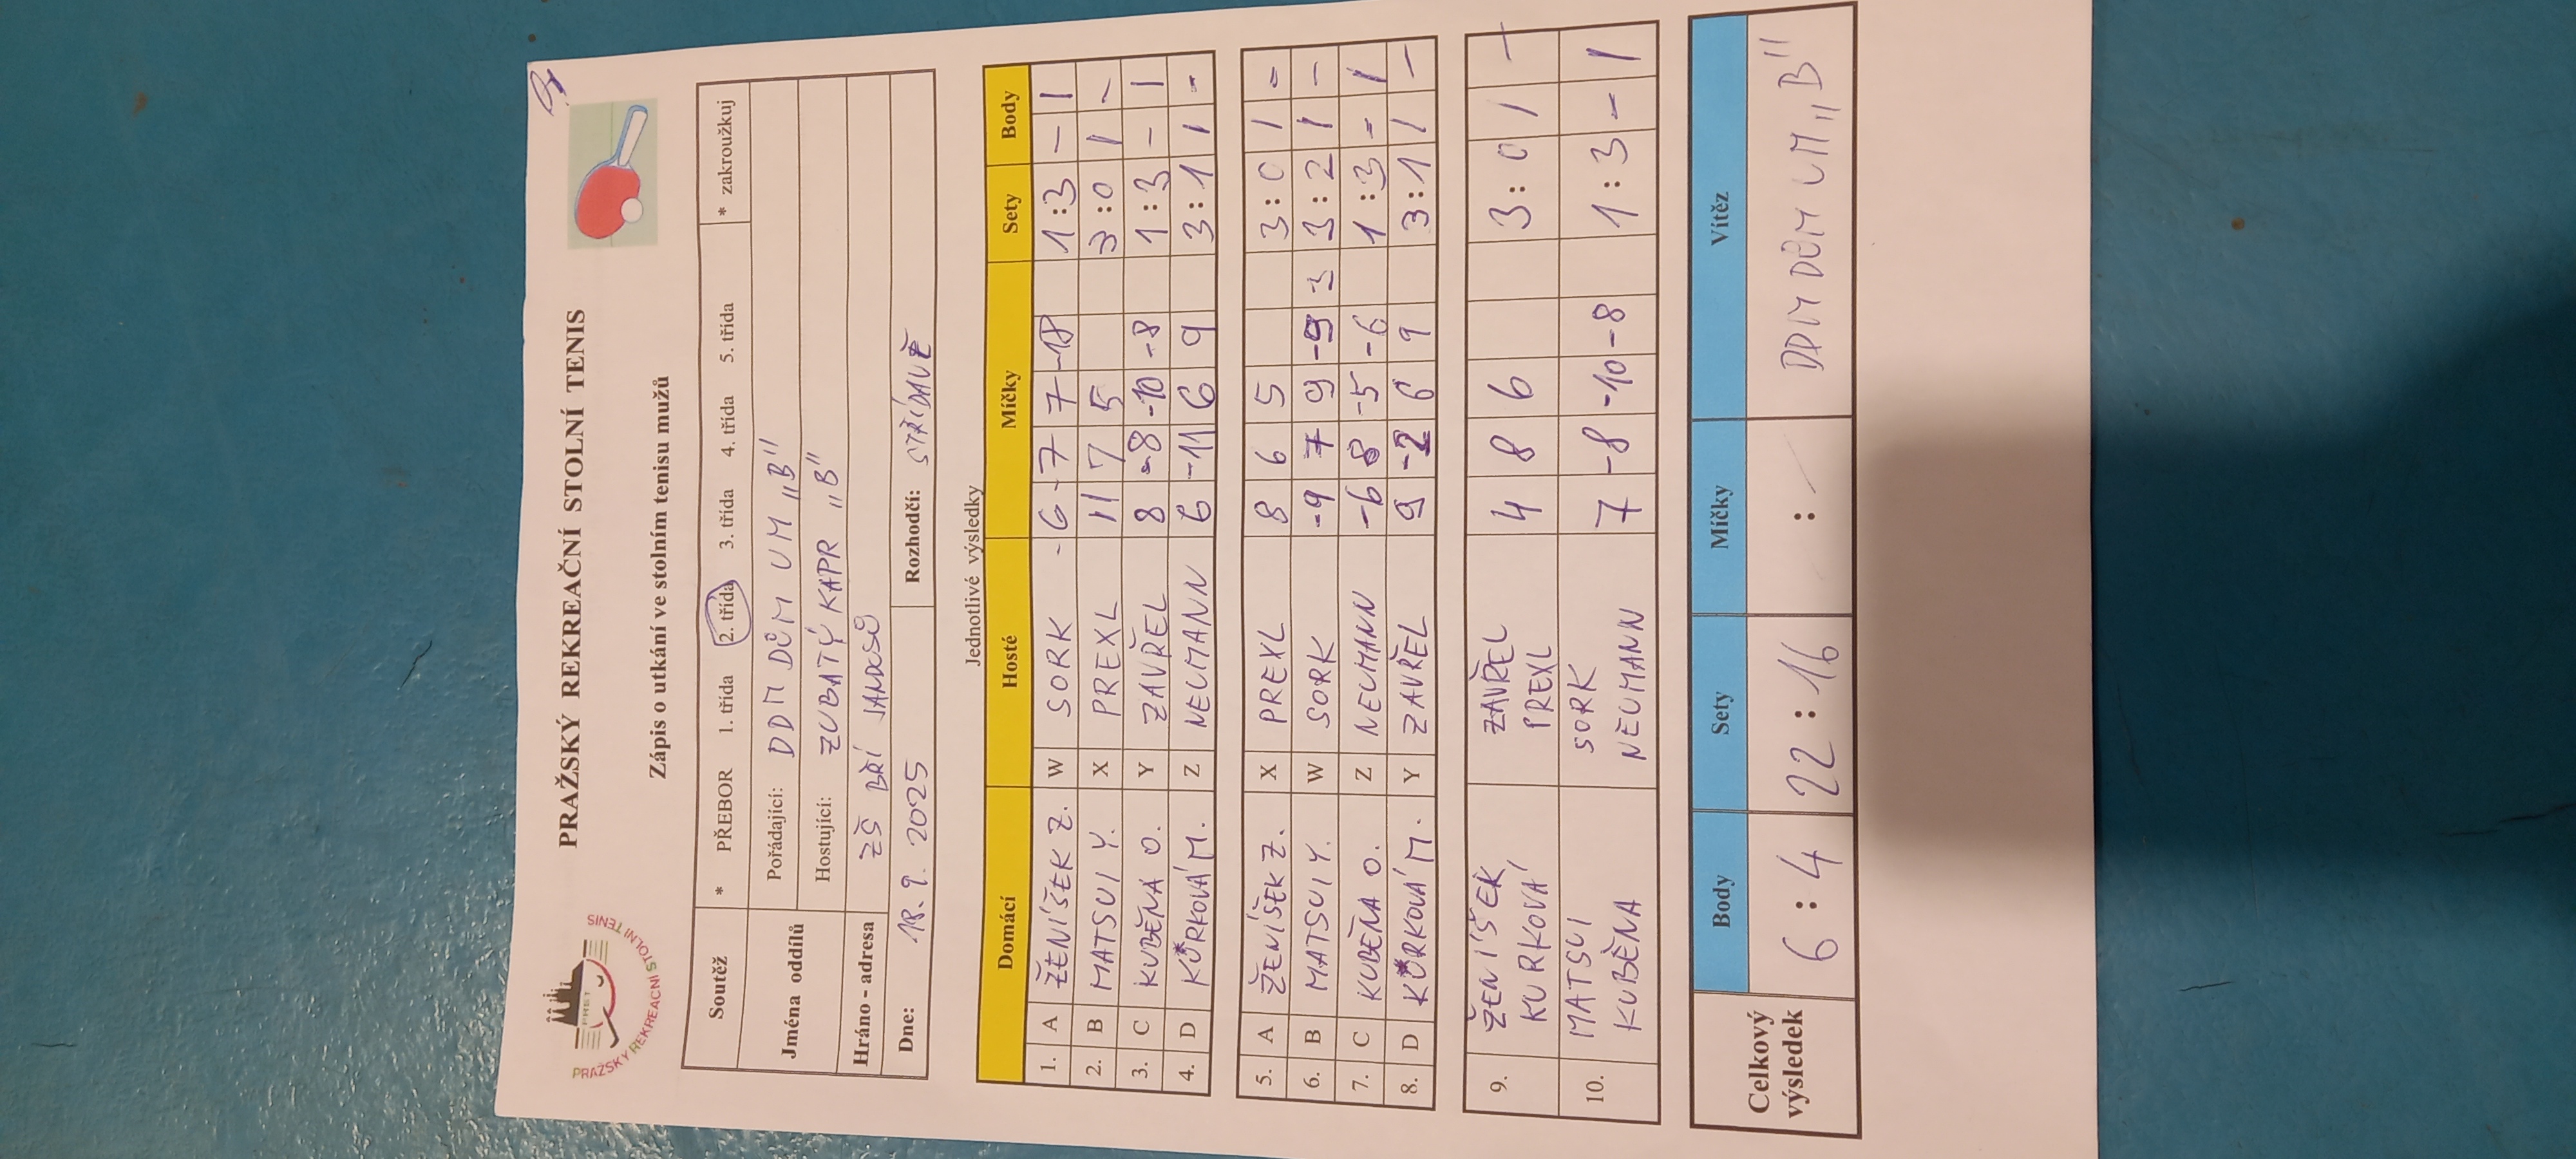 PRAŽSKÝ REKREAČNÍ STOLNÍ TENIS
PRAŽSKÝ REKREAČNÍ STOLNÍ TENIS
Zápis o utkání ve stolním tenisu mužů
Soutěž * PŘEBOR 1. třída 2. třída 3. třída 4. třída 5. třída * zakroužkuj
Jména oddílů Pořádající: DDM DŮM UM „B"
Hostující: ZUBATÝ KAPR „B"
Hráno - adresa ZŠ BŘÍ JANDUSŮ
Dne: 18. 9. 2025 Rozhodčí: STŘÍDAVĚ
Jednotlivé výsledky
Domácí Hosté Míčky Sety Body
1. A ŽENÍŠEK Z. W SORK -6 -7 7 -18 1:3 - 1
2. B MATSUI Y. X PREXL 11 7 5 3:0 1 -
3. C KUBĚNA O. Y ZAVŘEL 8 -8 -10 -8 1:3 - 1
4. D KURKOVÁ M. Z NEUMANN 6 -11 6 9 3:1 1 -
5. A ŽENÍŠEK Z. X PREXL 8 6 5 3:0 1 -
6. B MATSUI Y. W SORK -9 7 9 -9 3 3:2 1 -
7. C KUBĚNA O. Z NEUMANN -6 8 -5 -6 1:3 - 1
8. D KURKOVÁ M. Y ZAVŘEL 9 -2 6 9 3:1 1 -
9. ŽENÍŠEK ZAVŘEL 4 8 6 3:0 1 -
KURKOVÁ PREXL
10. MATSUI SORK 7 -8 -10 -8 1:3 - 1
KUBĚNA NEUMANN
Celkový výsledek Body Sety Míčky Vítěz
6:4 22:16 : DDM DŮM UM „B"